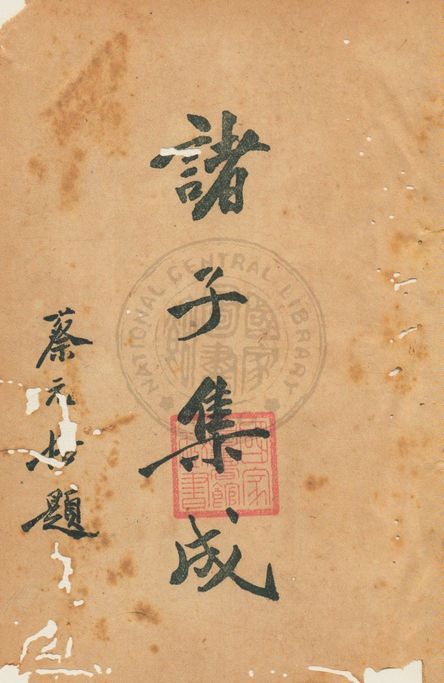 諸子集成
蔡元培題
NATIONAL CENTRAL LIBRARY
國家圖書館